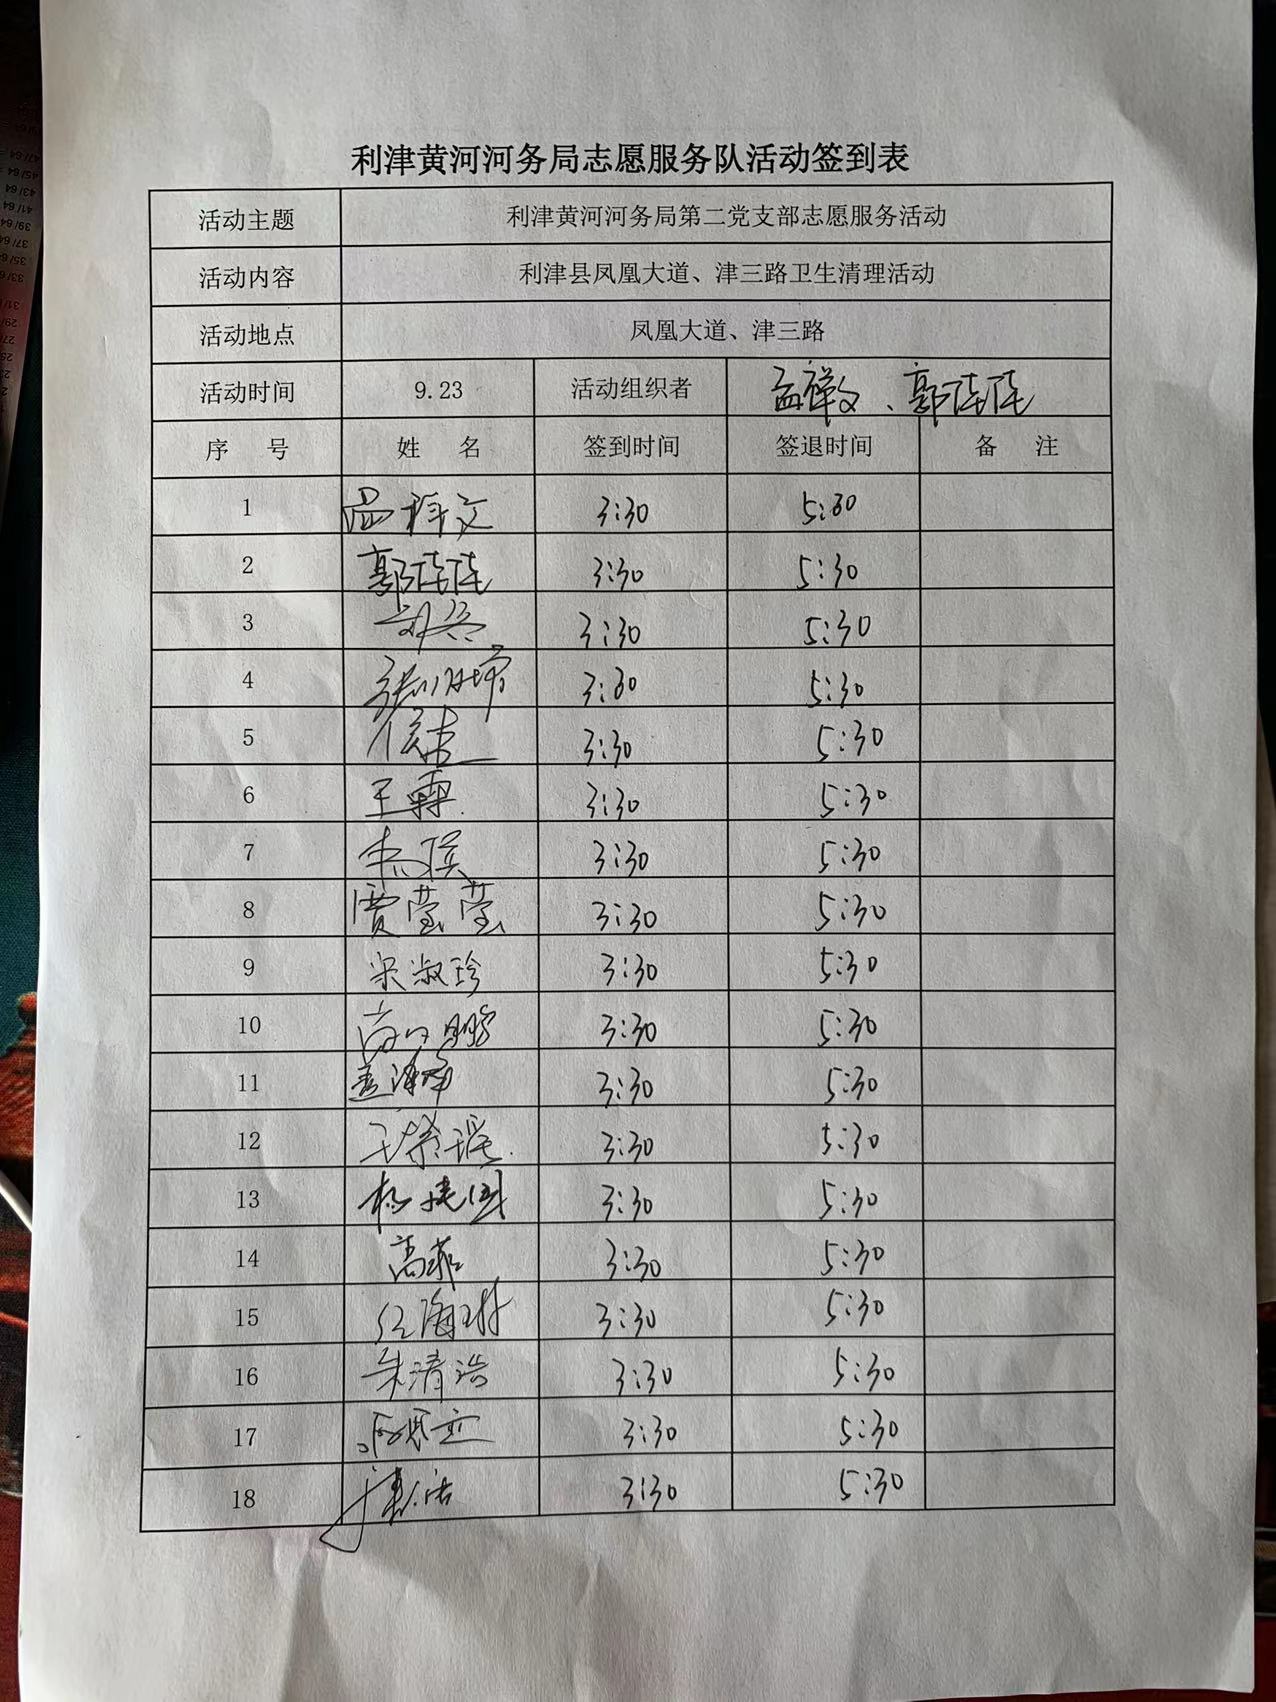 利津黄河河务局志愿服务队活动签到表
活动主题 利津黄河河务局第二党支部志愿服务活动
活动内容 利津县凤凰大道、津三路卫生清理活动
活动地点 凤凰大道、津三路
活动时间 9.23 活动组织者 郭陆陆
序 号 姓 名 签到时间 签退时间 备 注
1 3:30 5:30
2 郭陆陆 3:30 5:30
3 3:30 5:30
4 3:30 5:30
5 3:30 5:30
6 王霖 3:30 5:30
7 3:30 5:30
8 贾莹莹 3:30 5:30
9 宋淑珍 3:30 5:30
10 3:30 5:30
11 3:30 5:30
12 3:30 5:30
13 杨建国 3:30 5:30
14 高菲 3:30 5:30
15 3:30 5:30
16 朱清浩 3:30 5:30
17 3:30 5:30
18 3:30 5:30